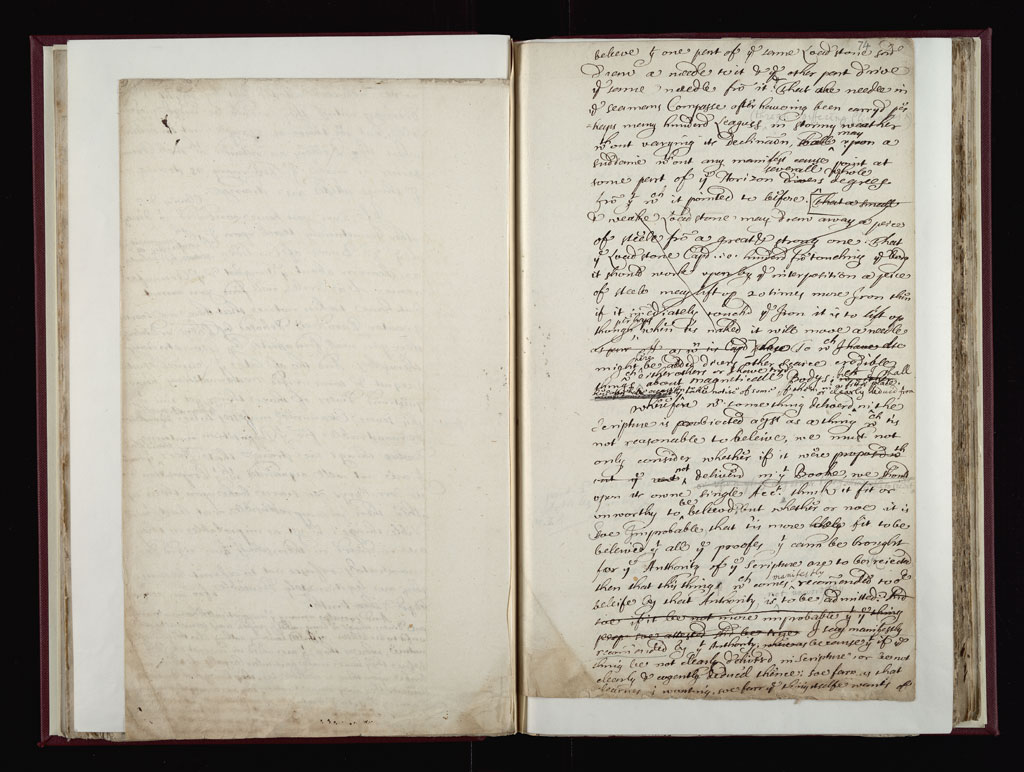 74
believe yt one part of ye same Loadstone sho'd
Draw a needle to it & ye other part drive
ye same needle fro it. That the needle in
ye Seamens Compasse after haveing been carry'd per-
-haps many hundred Leagues in stormy weather
wthout varying its Declination, shall may upon a
suddaine wthout any manifest cause point at
some part of ye Horizon severall whole divers degrees
fro yt wch it pointed to before. That a small
& weake Loadstone may draw away a peice
of steele fro a great & strong one. That
ye Loadstone Cap'd i.e. hinder'd fro touching ye body
it should work upon by ye interposition a peice
of steele may lift up 20 times more Iron then
if it immediately touch'd ye Iron it is to lift up
though perhaps when tis naked it will move a needle
wn tis Cap'd To wch I have
might be added divers other scarce credible
things either others or I have
about magneticall Bodys
take notice of some
Wherefore wn something deliver'd in the
Scripture is objected agst as a thing wch tis
not reasonable to beleive, we must not
only consider whether if it were propos'd
not deliver'd in yt Booke, we should
upon its owne single Acct. think it fit or
unworthy to be believ'd, but whether or noe it is
soe Improbable that tis more likely fit to be
believ'd yt all ye proofes yt cann be brought
for ye Authority of ye Scripture are to be rejected
then that this thing wch comes manifestly recomended to or
beleife by that Authority is to be admitted. And
soe if it be not more improbable yt ye thing
soe attested should be true I say manifestly
recomended by yt Authority, because yt if ye
thing be not clearly deliver'd in Scripture or be not
clearly & cogently deduc'd thence; soe farr as that
clearnes is wanting, soe farr ye thing itselfe wants of